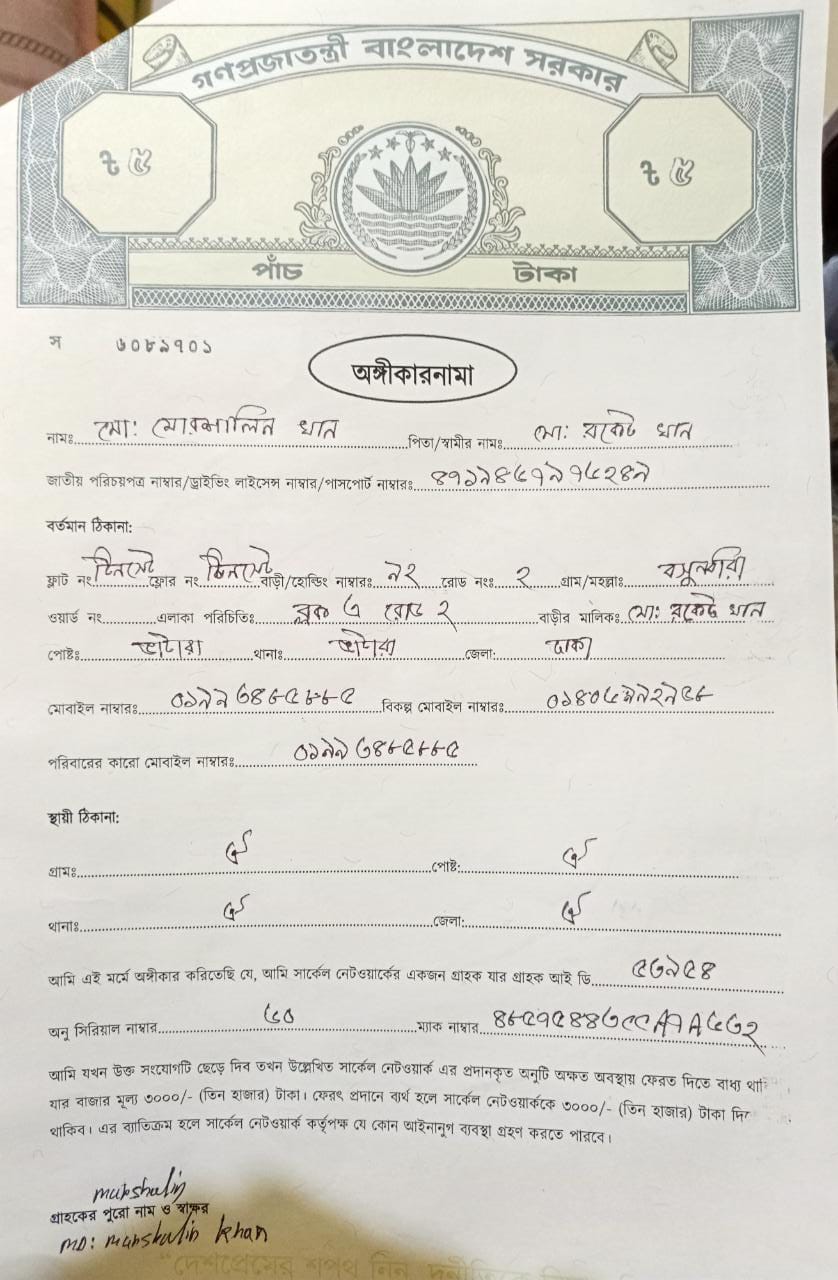 গণপ্রজাতন্ত্রী বাংলাদেশ সরকার
৳ ৫ ৳ ৫
পাঁচ টাকা
স ৬০৮৯৭০১
অঙ্গীকারনামা
নামঃ মো: মোরসালিন খান পিতা/স্বামীর নামঃ মো: রকেট খান
জাতীয় পরিচয়পত্র নাম্বার/ড্রাইভিং লাইসেন্স নাম্বার/পাসপোর্ট নাম্বারঃ
বর্তমান ঠিকানা:
ফ্লাট নং টিনসেট ফ্লোর নং টিনসেট বাড়ী/হোল্ডিং নাম্বারঃ ৯২ রোড নংঃ ২ গ্রাম/মহল্লাঃ বসুন্ধরা
ওয়ার্ড নং এলাকা পরিচিতিঃ ব্লক এ রোড ২ বাড়ীর মালিকঃ মো: রকেট খান
পোষ্টঃ ভাটারা থানাঃ ভাটারা জেলা: ঢাকা
মোবাইল নাম্বারঃ ০১৯৯৩৪৮৫৮৮৫ বিকল্প মোবাইল নাম্বারঃ
পরিবারের কারো মোবাইল নাম্বারঃ ০১৯৯৩৪৮৫৮৮৫
স্থায়ী ঠিকানা:
গ্রামঃ ঐ পোষ্ট: ঐ
থানাঃ ঐ জেলা: ঐ
আমি এই মর্মে অঙ্গীকার করিতেছি যে, আমি সার্কেল নেটওয়ার্কের একজন গ্রাহক যার গ্রাহক আই ডি ৫৩৯৫৪
অনু সিরিয়াল নাম্বার ম্যাক নাম্বার
আমি যখন উক্ত সংযোগটি ছেড়ে দিব তখন উল্লেখিত সার্কেল নেটওয়ার্ক এর প্রদানকৃত অনুটি অক্ষত অবস্থায় ফেরত দিতে বাধ্য
যার বাজার মূল্য ৩০০০/- (তিন হাজার) টাকা। ফেরৎ প্রদানে ব্যর্থ হলে সার্কেল নেটওয়ার্ককে ৩০০০/- (তিন হাজার) টাকা
থাকিব। এর ব্যতিক্রম হলে সার্কেল নেটওয়ার্ক কর্তৃপক্ষ যে কোন আইনানুগ ব্যবস্থা গ্রহণ করতে পারবে।
murshalin
গ্রাহকের পুরো নাম ও স্বাক্ষর
MD: murshalin khan
"দেশপ্রেমের শপথ নিন,